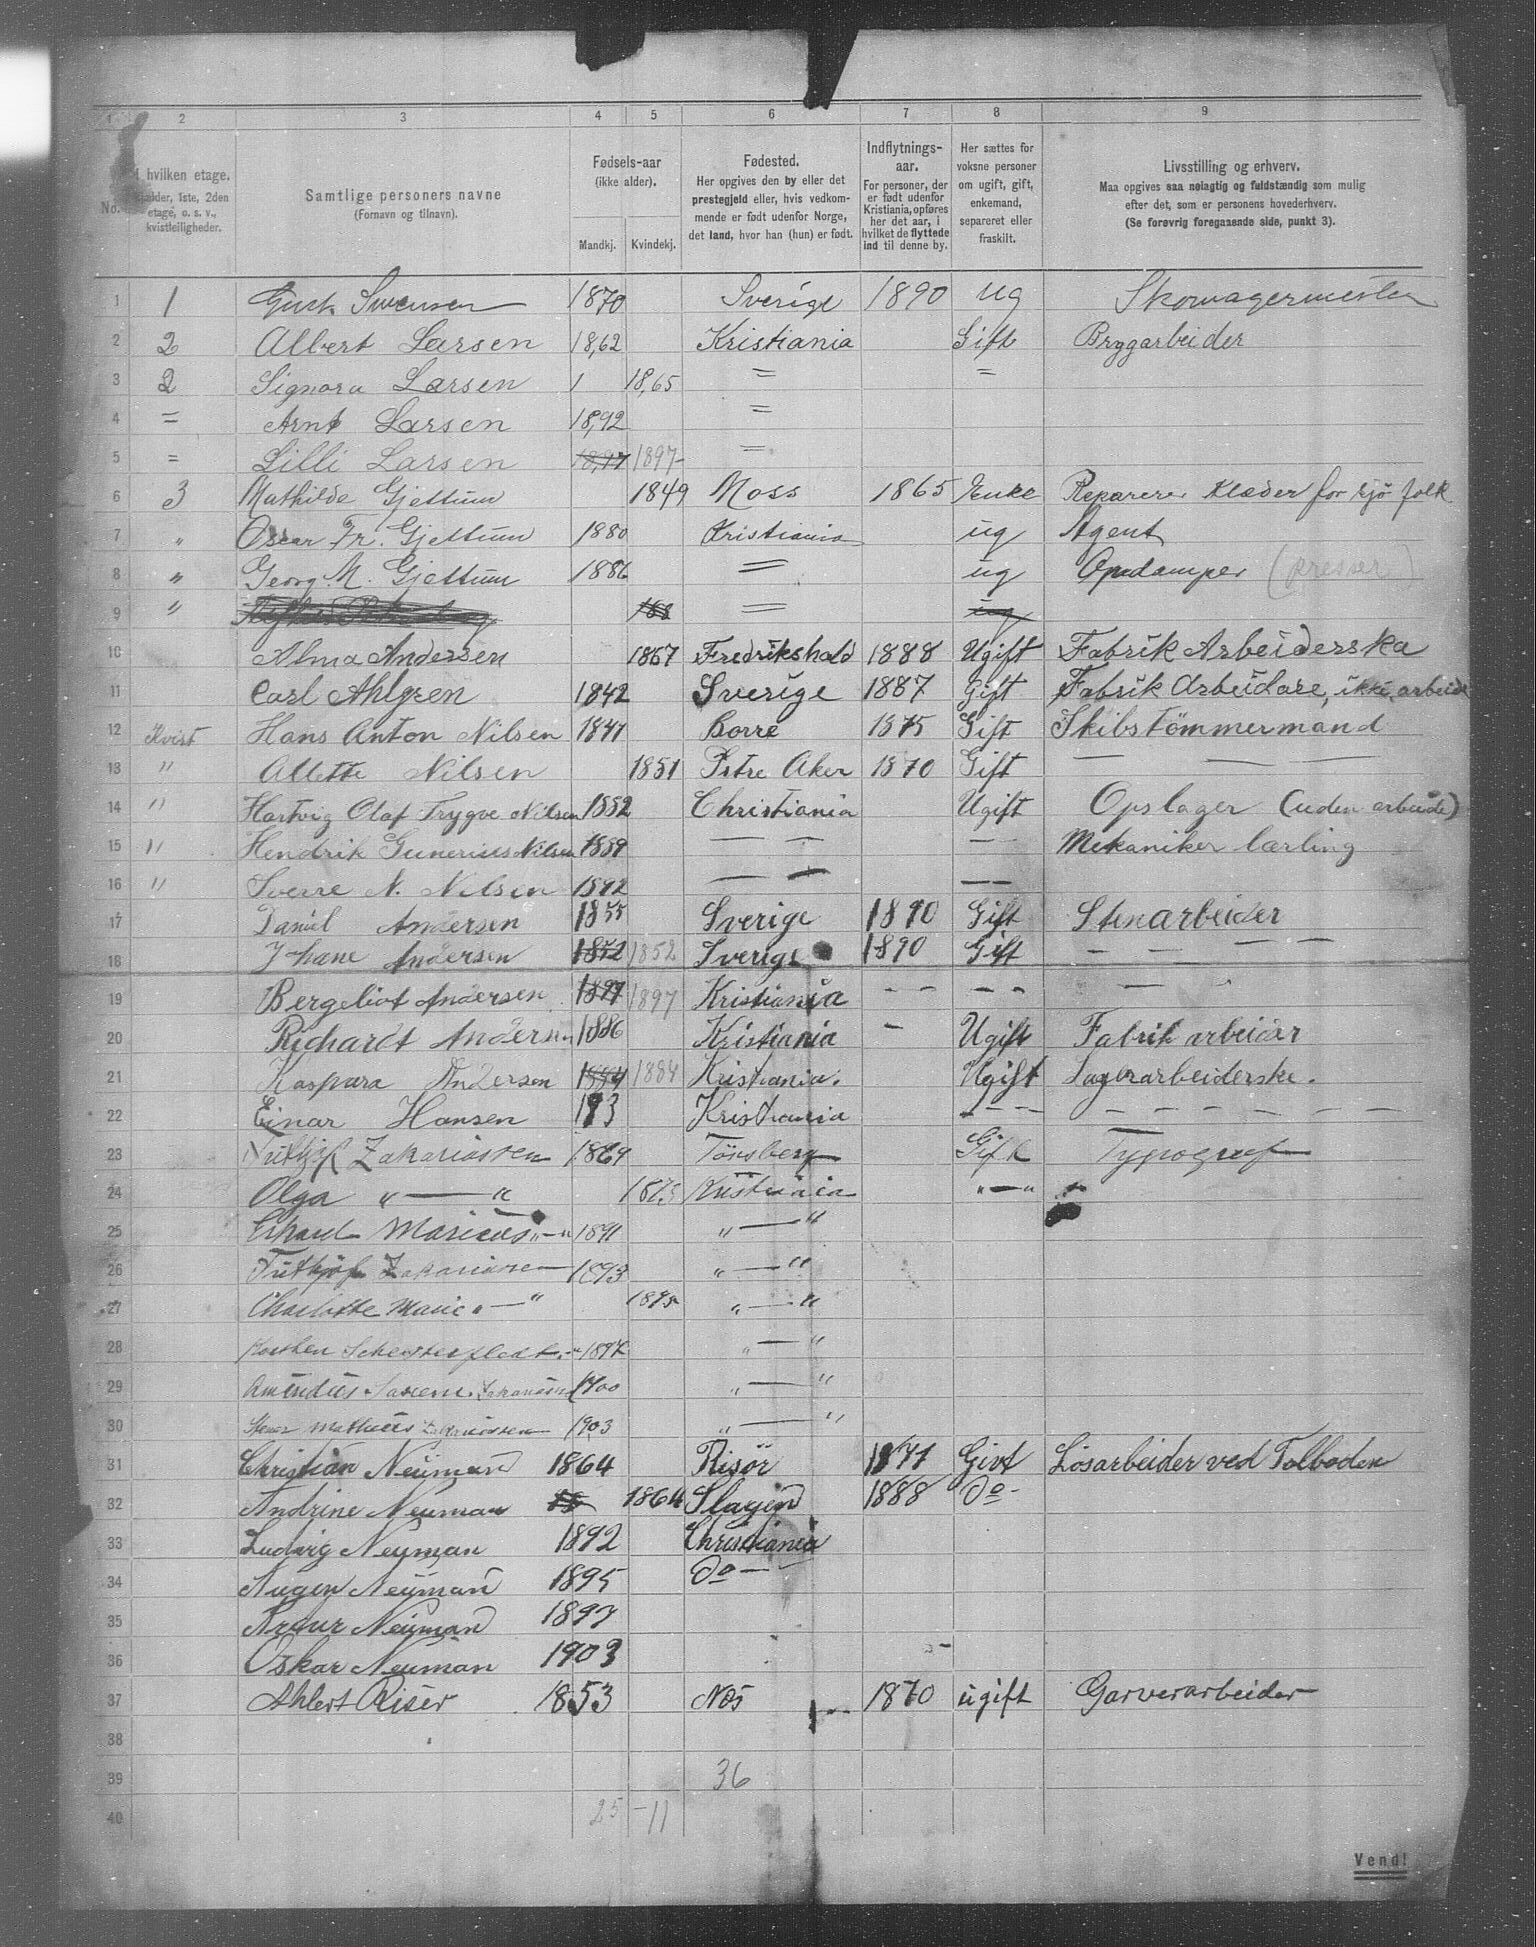 1 2 3 4 5 6 7 8 9
No.
I hvilken etage.
kjælder, 1ste, 2den
etage, o. s. v.,
kvistleiligheder.
Samtlige personers navne
(Fornavn og tilnavn).
Fødsels-aar
(ikke alder).
Mandkj. Kvindekj.
Fødested.
Her opgives den by eller det
prestegjeld eller, hvis vedkom-
mende er født udenfor Norge,
det land, hvor han (hun) er født.
Indflytnings-
aar.
For personer, der
er født udenfor
Kristiania, opføres
her det aar, i
hvilket de flyttede
ind til denne by.
Her sættes for
voksne personer
om ugift, gift,
enkemand,
separeret eller
fraskilt.
Livsstilling og erhverv.
Maa opgives saa nøiagtig og fuldstændig som mulig
efter det, som er personens hovederhverv.
(Se forøvrig foregaaende side, punkt 3).
1 1 Swensen 1870 Sverige 1890 ug Skomagermester
2 2 Albert Larsen 1862 Kristiania Gift Bryggarbeider
3 2 Signora Larsen 1 1865 = =
4 = Arnt Larsen 1892 =
5 = Lilli Larsen 1897 1897 =
6 3 Mathilde Gjettum 1849 Moss 1865 Enke Reparerer Klæder for sjö folk
7 " Oscar Fr. Gjettum 1880 Kristiania ug Agent
8 " Georg M. Gjettum 1886 = ug Opdamper (presser)
9 " 188 = ug
10 Alma Andersen 1867 Fredrikshald 1888 Ugift Fabrik Arbeiderska
11 Carl Ahlgren 1842 Sverige 1887 Gift Fabrik Arbeidare, ikke arbeide
12 Kvist Hans Anton Nilsen 1847 Borre 1875 Gift Skibstömmermand
13 " Allette Nilsen 1851 Østre Aker 1870 Gift — — —
14 " Hartvig Olaf Trygve Nilsen 1882 Christiania Ugift Opslager (uden arbeide)
15 " Hendrik Gunerius Nilsen 1889 — — — Mekaniker lærling
16 " Sverre N. Nilsen 1892 — — —
17 Daniel Andersen 1855 Sverige 1890 Gift Stenarbeider
18 Andersen 1852 1852 Sverige 1890 Gift — — — —
19 Bergeliot Andersen 1897 1897 Kristiania - - - - — -
20 Richardt Andersen 1886 Kristiania - Ugift Fabrik arbeider
21 Kaspara Andersen 1884 1884 Kristiania. Ugift Lagerarbeiderske.
22 Einar Hansen Kristiania - - - - - - - - - - -
23 Zakariassen 1869 Tönsberg Gift Typograf
24 Olga " — " Kristiania " — "
25 Erhard Marius " — " 1891 " — "
26 Zakariassen 1893 " — "
27 Charlotte Marie " — " 1895 " — "
28 " — "
29 1900 " — "
30 Zakariassen 1903 " — "
31 Christian Neuman 1864 Risör 1871 Givt Lösarbeider ved Tolboden
32 Andrine Neuman 1864 Slagen 1888 Do -
33 Ludvig Neuman 1892 Christiania
34 Neuman 1895 Do —
35 Neuman 1897
36 Oskar Neuman 1903
37 Ahlert Riser 1853 Næs 1870 ugift Garverarbeider
38
39 36
40 25 - 11
Vend!